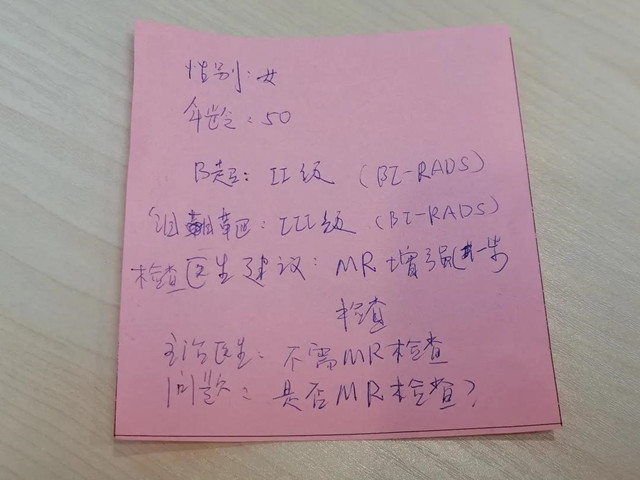 性别：女
年龄：50
B超：II级（BI-RADS）
钼靶：III级（BI-RADS）
检查医生建议：MR增强进一步
检查
主治医生：不需MR检查
问题：是否MR检查？